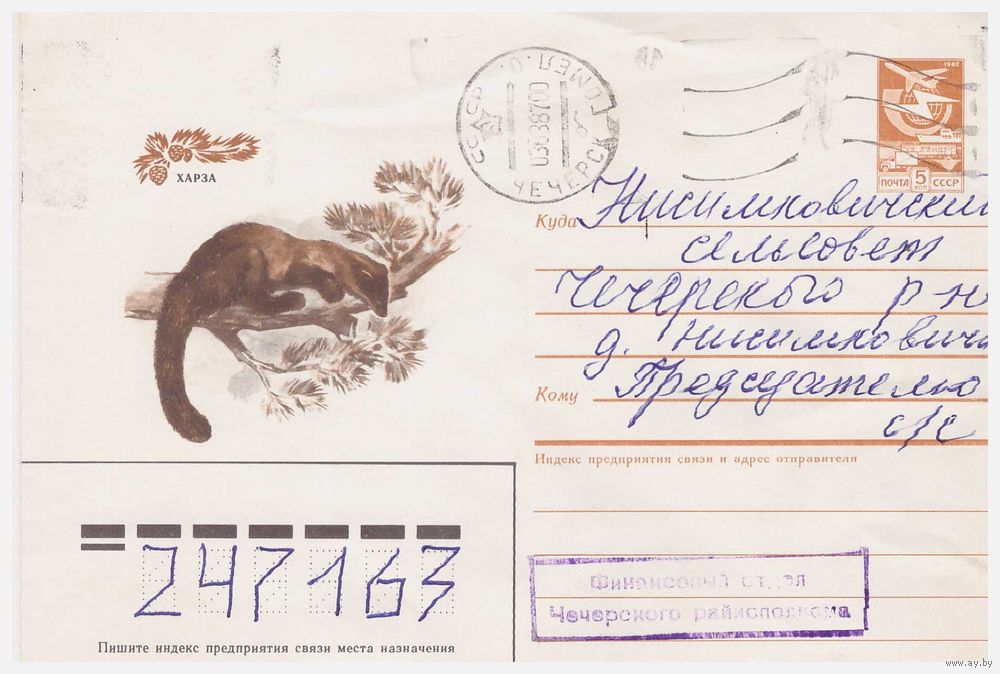 ХАРЗА
СССР
ГОМЕЛ. О.
03038700
ЧЕЧЕРСК
1982
ПОЧТА 5 КОП СССР
Куда Нисимковичский
сельсовет
Чечерского р-н
д. Нисимкович
Кому Председателю
с/с
Индекс предприятия связи и адрес отправителя
247163
Пишите индекс предприятия связи места назначения
Финансовый от..ел
Чечерского райисполкома
www.ay.by